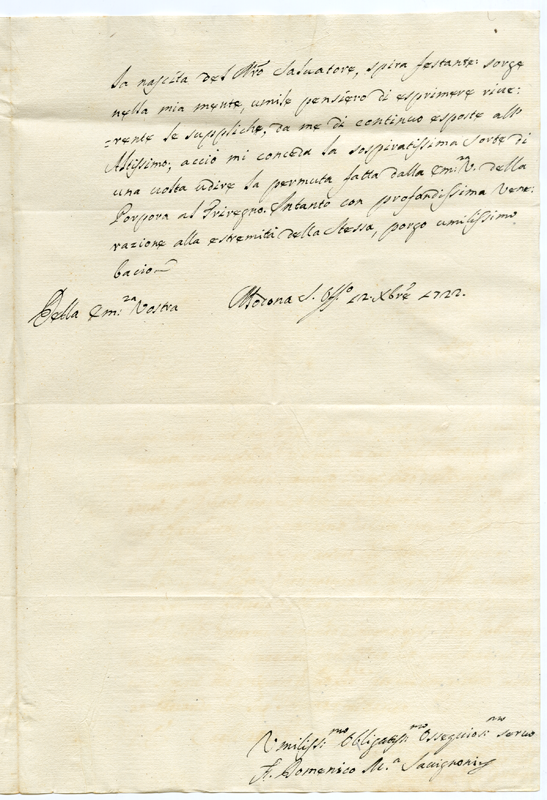 la nascita del Nro Salvatore, spira festante: sorge
nella mia mente, umile pensiero di esprimere rive:
:rente le suppliche, da me di continuo esposte all'
Altissimo; accio mi conceda la sospiratissima sorte di
una volta udire la permuta fatta dalla Em:za V. della
Porpora al Triregno. Intanto con profondissima Vene:
razione alla estremità della Stessa, porgo umilissimo
bacio
Della Em:za Vostra Modona S. Off.o 12 Xbre 1722.
Umiliss:mo Obligatiss:mo Ossequiosi:mo servo
F. Domenico M.a Savignoni